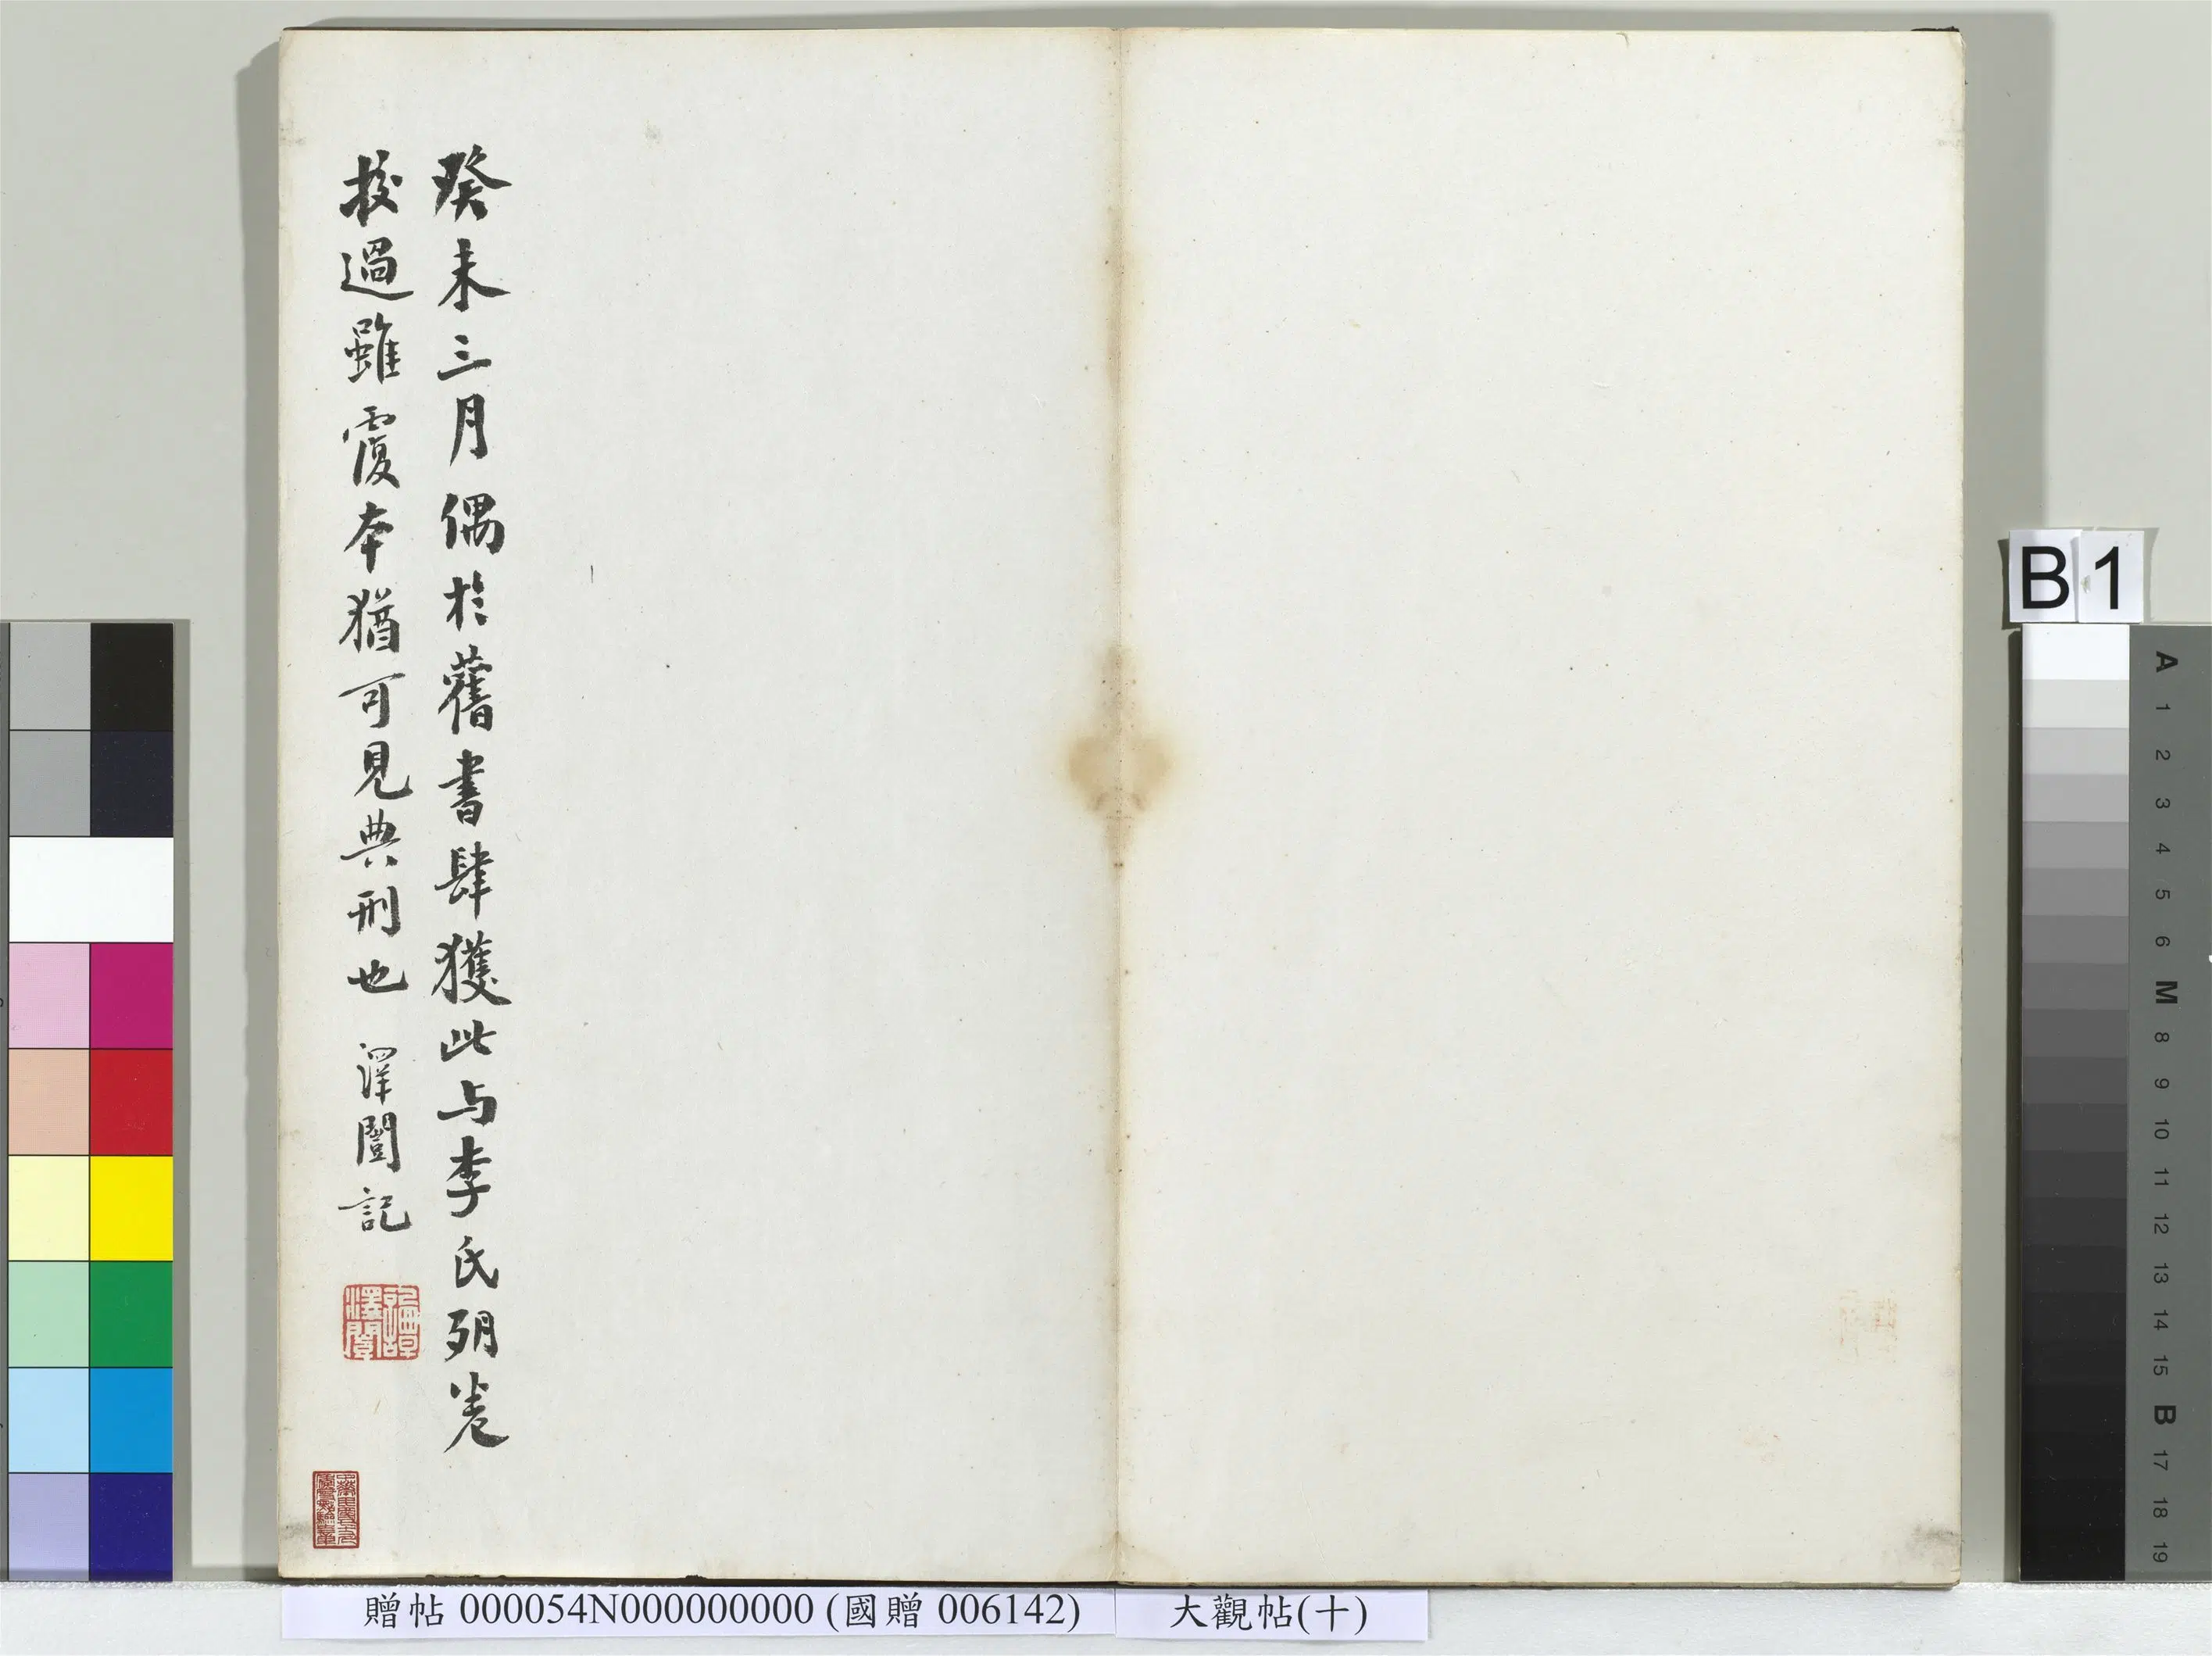 癸未三月偶於舊書肆獲此与李氏殘卷
挍過雖覆本猶可見典刑也 澤闓記
譚澤闓印
B1
A 1 2 3 4 5 6 M 8 9 10 11 12 13 14 15 B 17 18 19
贈帖 000054N000000000 (國贈 006142)
大觀帖(十)